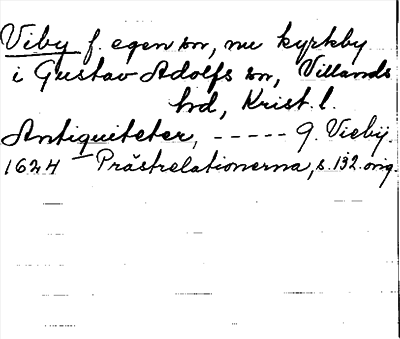 Viby f. egen sn, nu kyrkby
i Gustav Adolfs sn, Villands
hd, Krist. l.
Antiquiteter, ----- 9. Vieby.
1624 - Prästrelationerna, s. 132. orig.